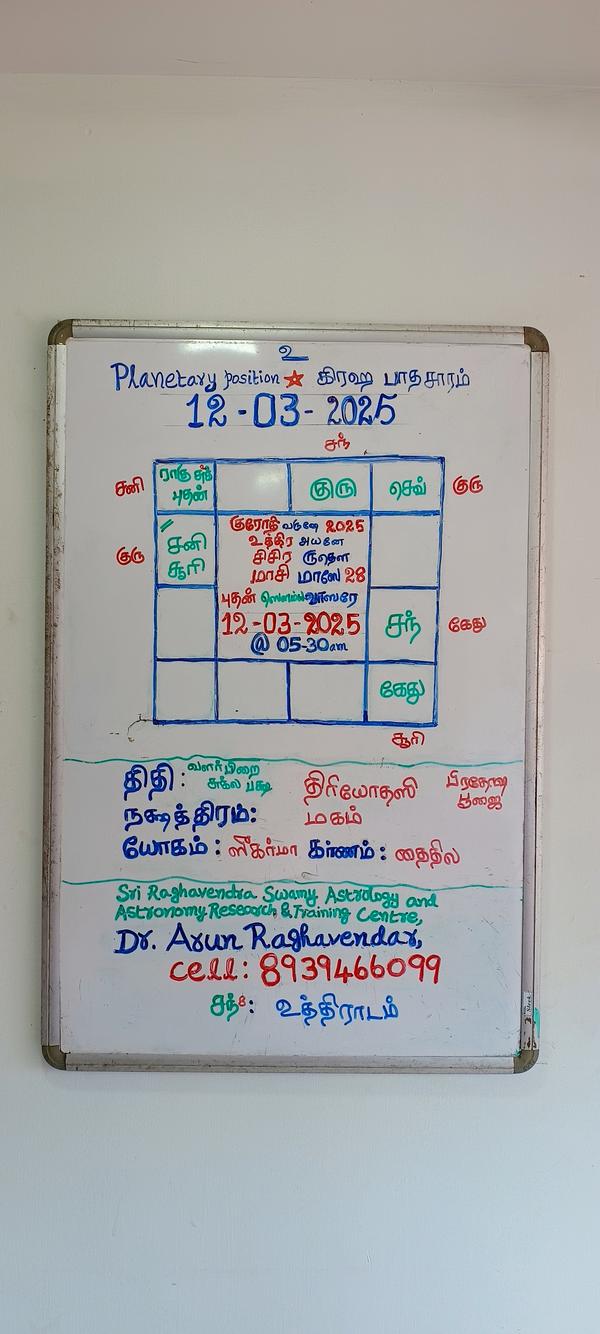 உ
Planetary position ☆ கிரஹ பாதசாரம்
12-03-2025
சந்
சனி ராகு சுக் குரு செவ் குரு
புதன்
குரோதி வருஷே 2025
உத்திர அயனே
குரு சனி சிசிர ருதௌ
சூரி மாசி மாஸே 28
புதன் ஸௌம்ய வாஸரே
12-03-2025 சந் கேது
@ 05-30am
கேது
சூரி
திதி: வளர்பிறை சுக்ல பக்ஷ திரியோதஸி பிரதோஷ பூஜை
நக்ஷத்திரம்: மகம்
யோகம்: ஸுகர்மா கர்ணம்: தைதில
Sri Raghavendra Swamy Astrology and
Astronomy Research & Training Centre,
Dr. Arun Raghavendar,
cell: 8939466099
சந்8: உத்திராடம்